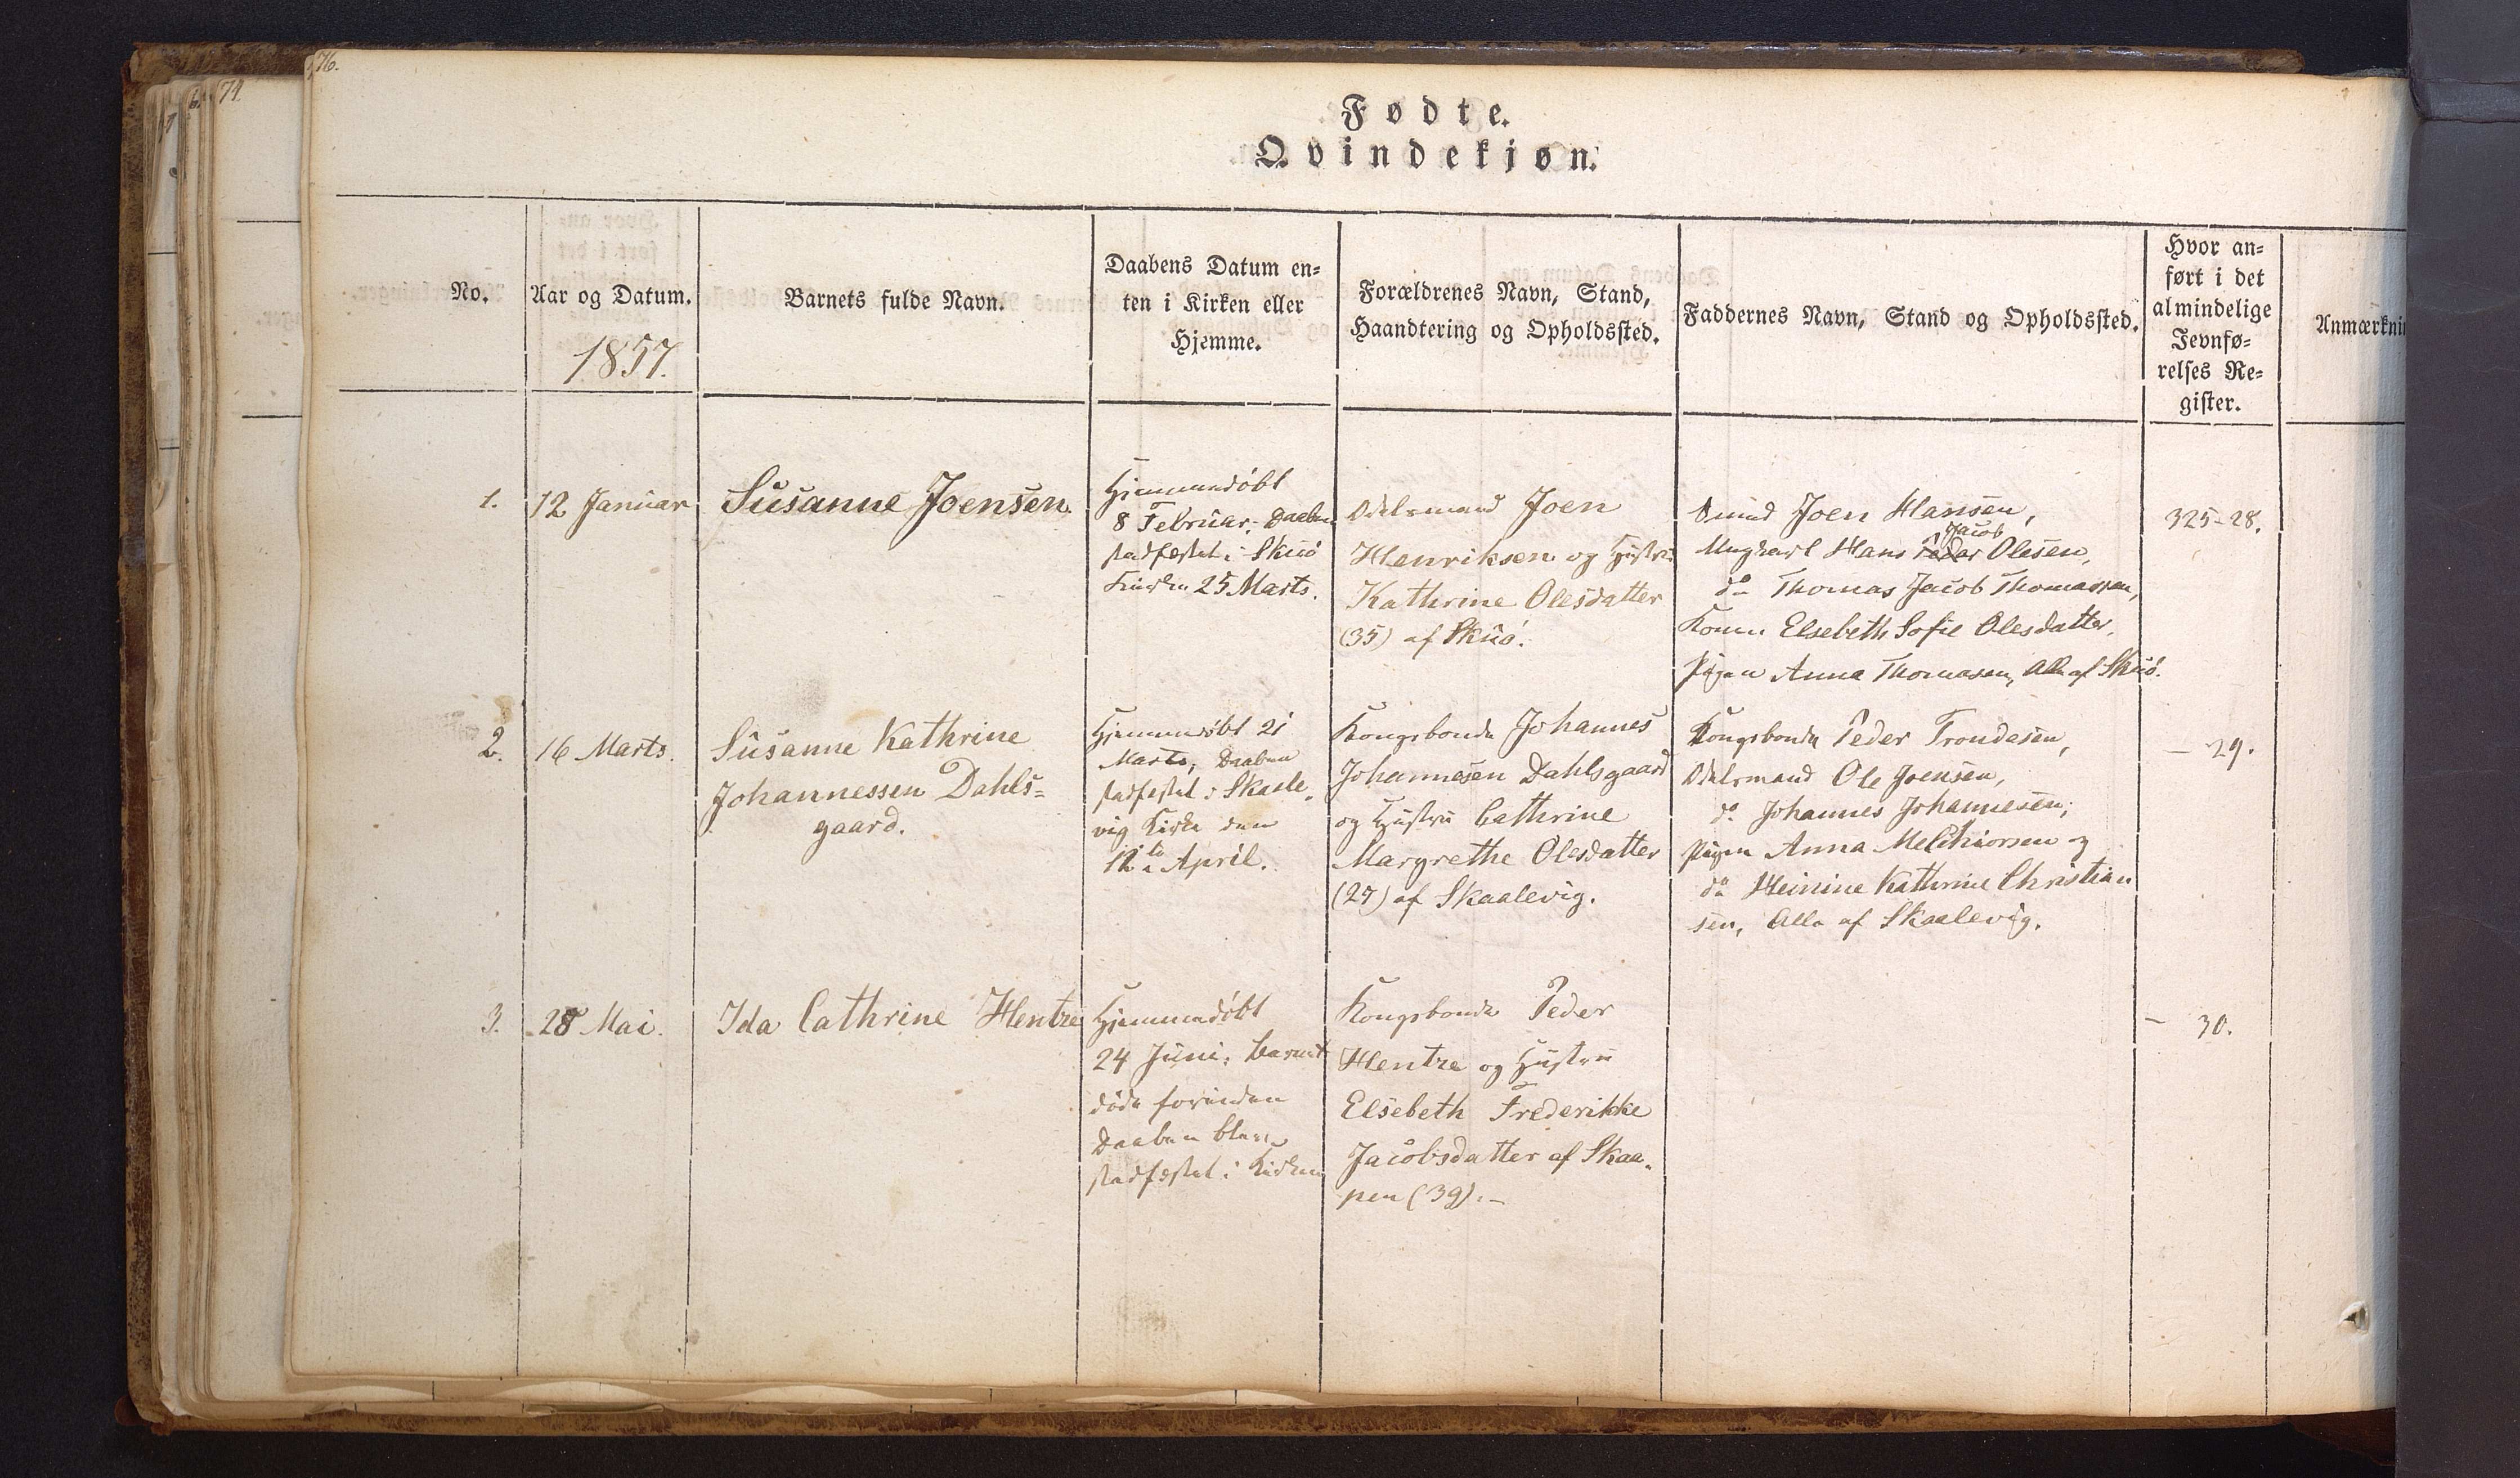 76.
74
Fødte.
Qvindekjøn.
No.
Aar og Datum.
1857.
Barnets fulde Navn.
Daabens Datum en=
ten i Kirken eller
Hjemme.
Forældrenes Navn, Stand,
Haandtering og Opholdssted.
Faddernes Navn, Stand og Opholdssted.
Hvor an=
ført i det
almindelige
Jevnfø=
relses Re=
gister.
Anmærkni
1.
12 Januar
Susanne Joensen.
Hjemmedøbt
8 Februar; Daaben
stadfæstet i Skuø
Kirke 25 Marts.
Odelsmand Joen
Henriksen og Hustru
Kathrine Olesdatter
(35) af Skuø.
Joen Hansen,
Jacob
Ungkarl Hans Peder Olesen,
do Thomas Jacob Thomassen,
Konen Elsebeth Sofie Olesdatter,
Pigen Anna Thomasen, Alle af Skuø.
325-28.
2.
16 Marts.
Susanne Kathrine
Johannessen Dahls=
gaard.
Hjemmedøbt 21
Marts; Daaben
stadfæstet i Skaale-
vig Kirke den
12te April.
Kongsbonde Johannes
Johannesen Dahlsgaard
og Hustru Cathrine
Margrethe Olesdatter
(27) af Skaalevig.
Kongsbonde Peder Trondesen,
Odelsmand Ole Joensen,
do Johannes Johannesen;
Pigen Anna Melchiorsen og
do Heinine Kathrine Christian
sen, Alle af Skaalevig.
- 29.
3.
28 Mai.
Ida Cathrine Hentze
Hjemmedøbt
24 Juni; barnet
døde forinden
Daaben blev
stadfæstet i Kirken
Kongsbonde Peder
Hentze og Hustru
Elsebeth Frederikke
Jacobsdatter af Skaa-
pen (39).-
- 30.